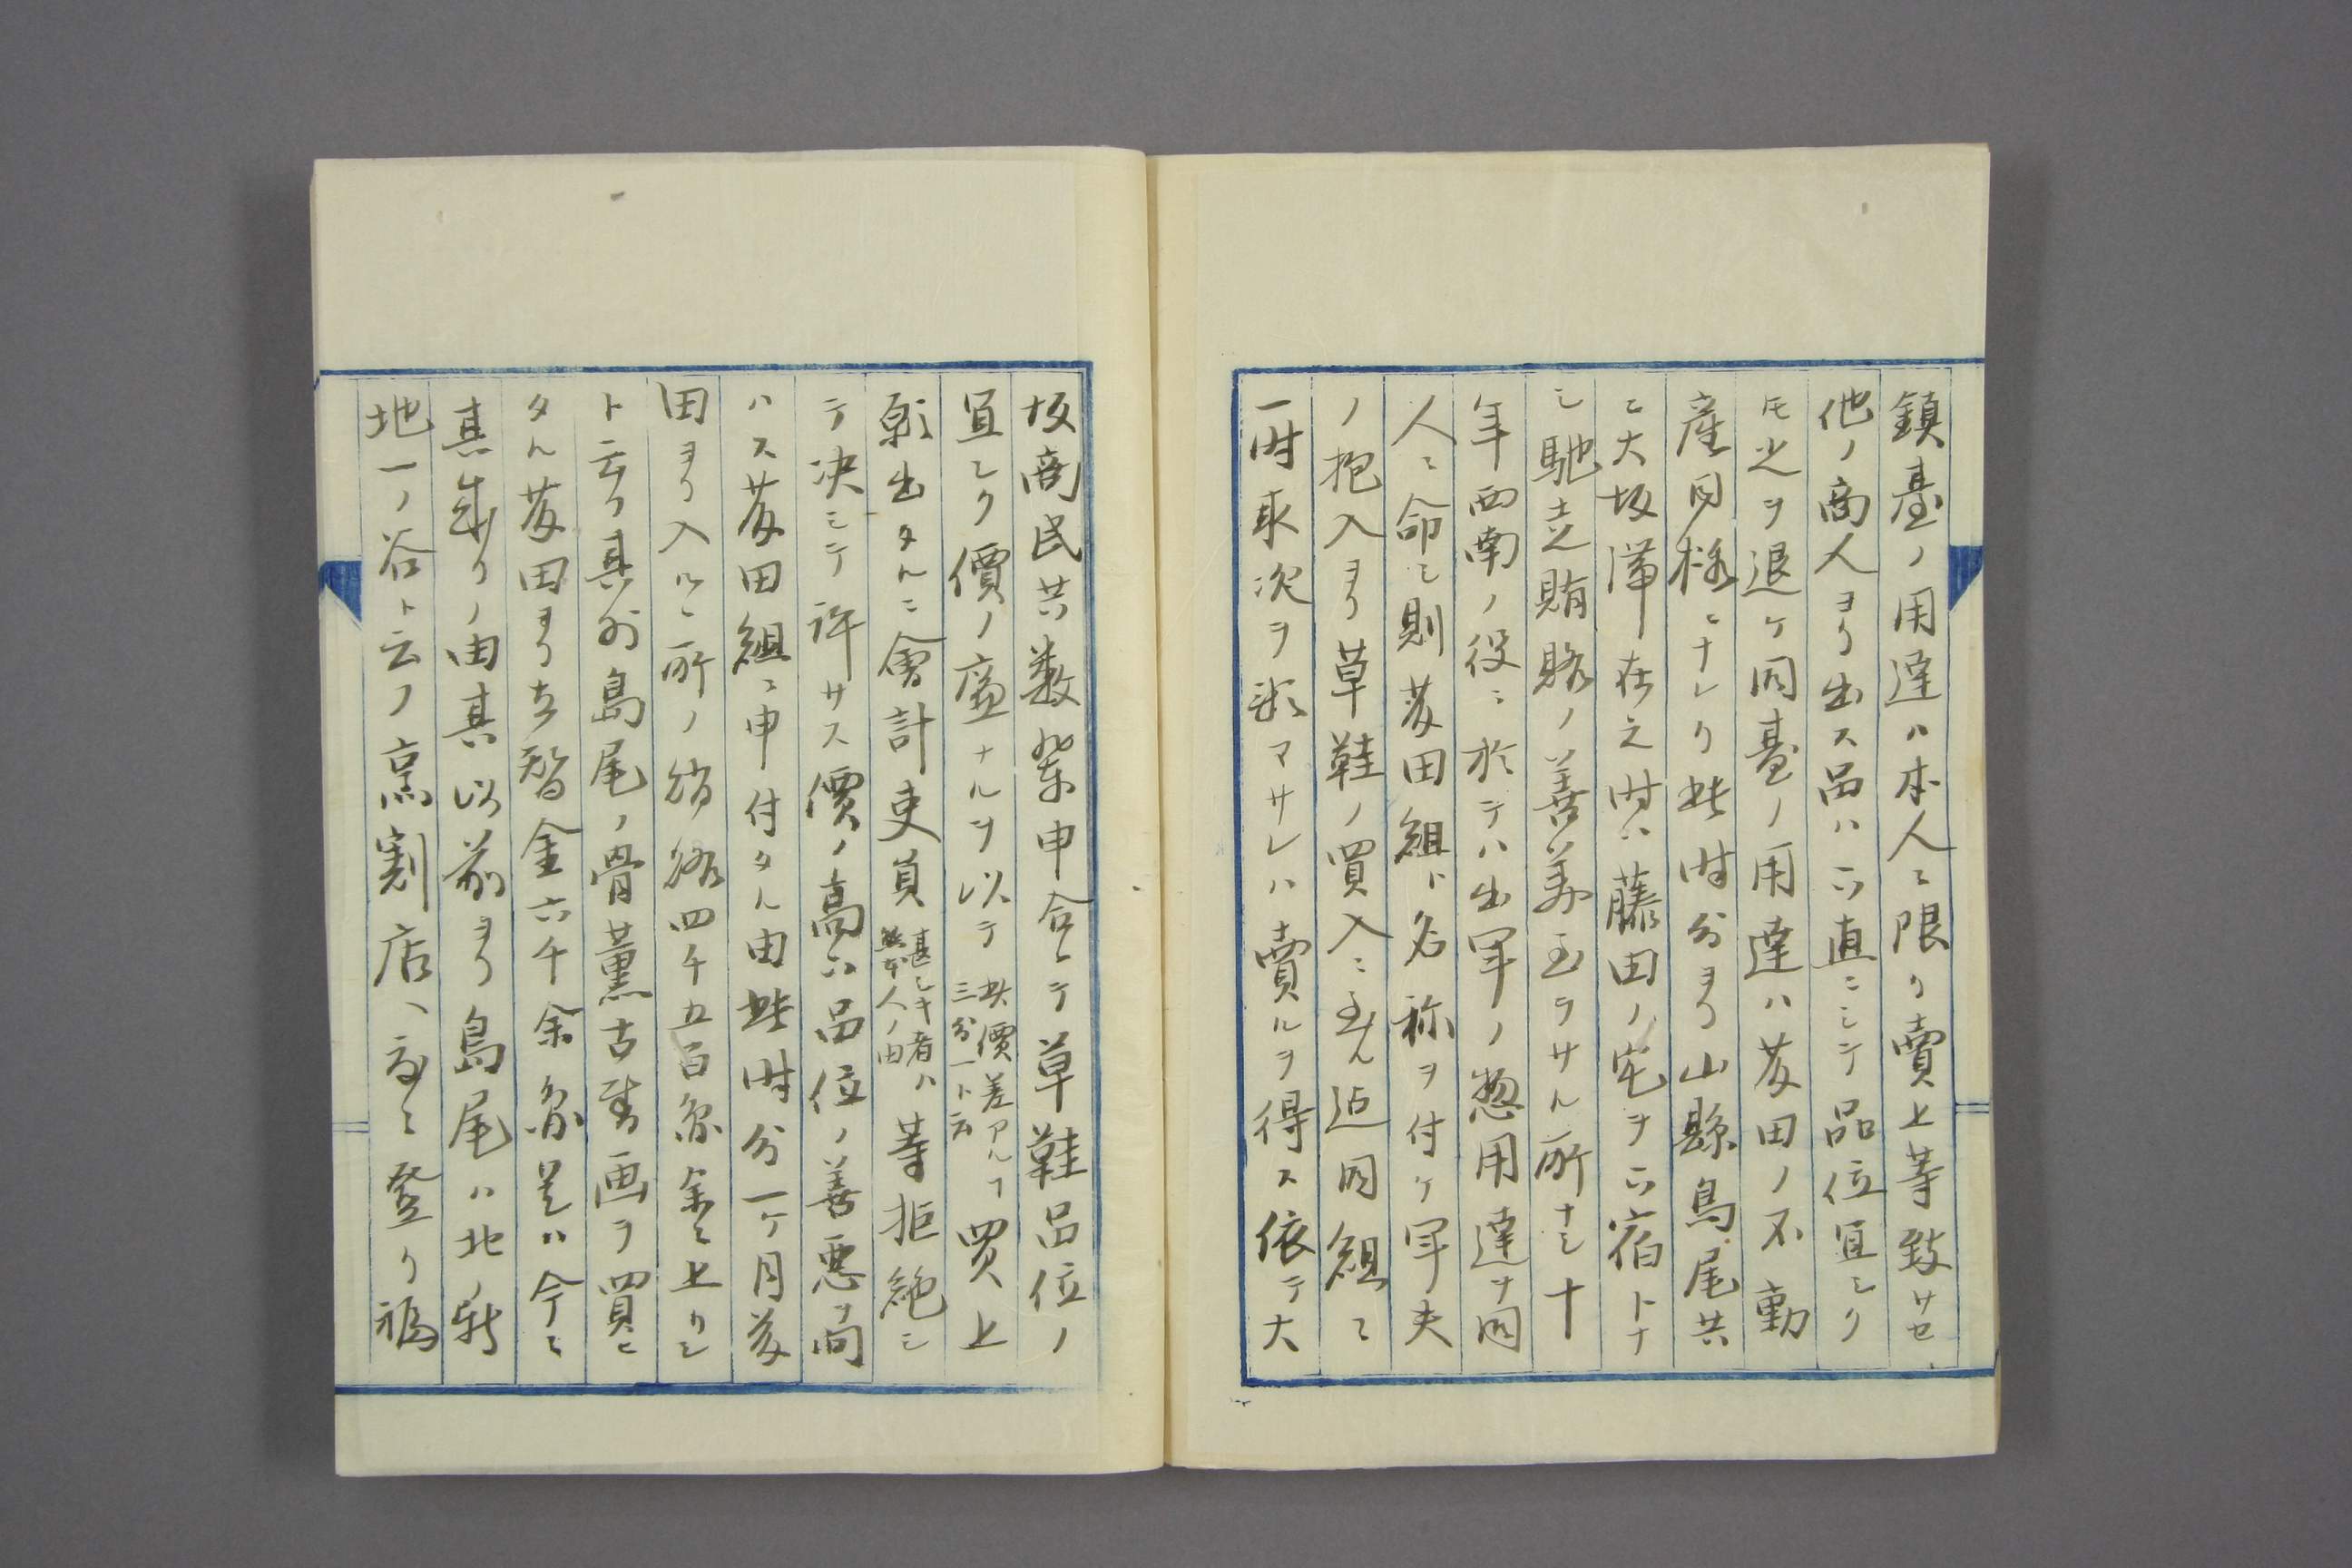 鎮臺ノ用達ハ本人ニ限リ賣上等致サセ
他ノ商人ヨリ出ス品ハ仮令直ニシテ品位宜シク
モ之ヲ退ケ同臺ノ用達ハ藤田ノ不動
産同様ニナレリ此時分ヨリ山縣鳥尾共
ニ大坂滞在之時ハ藤田ノ宅ヲ以宿トナ
シ馳走賄賂ノ善美至ラサル所ナシ十
年西南ノ役ニ於テハ出軍ノ惣用達ヲ同
人ニ命シ則藤田組ト名称ヲ付ケ軍夫
ノ抱入ヨリ草鞋ノ買入ニ至ル迄同組ニ
一時取次ヲ頼マサレハ賣ルヲ得ス依テ大
坂商民共数輩申合シテ草鞋品位ノ
宜シク價ノ廉ナルヲ以テ 其價差アルヿ三分一ト云 買上
願出タルニ會計吏員 甚シキ者ハ 人ノ由 等拒絶シ
テ決シテ許サス價ノ高ハ品位ノ善悪ヲ問
ハス藤田組ニ申付タル由此時分一ケ月藤
田ヨリ入ルヽ所ノ賄賂四千五百余金ニ上リシ
ト云フ其外鳥尾ノ骨董古書画ヲ買ヒ
タル藤田ヨリ立替金六千余円是ハ今ニ
其儘リノ由其以前ヨリ鳥尾ハ北ノ新
地一ノ谷ト云フ烹割店ヘ度々登リ福